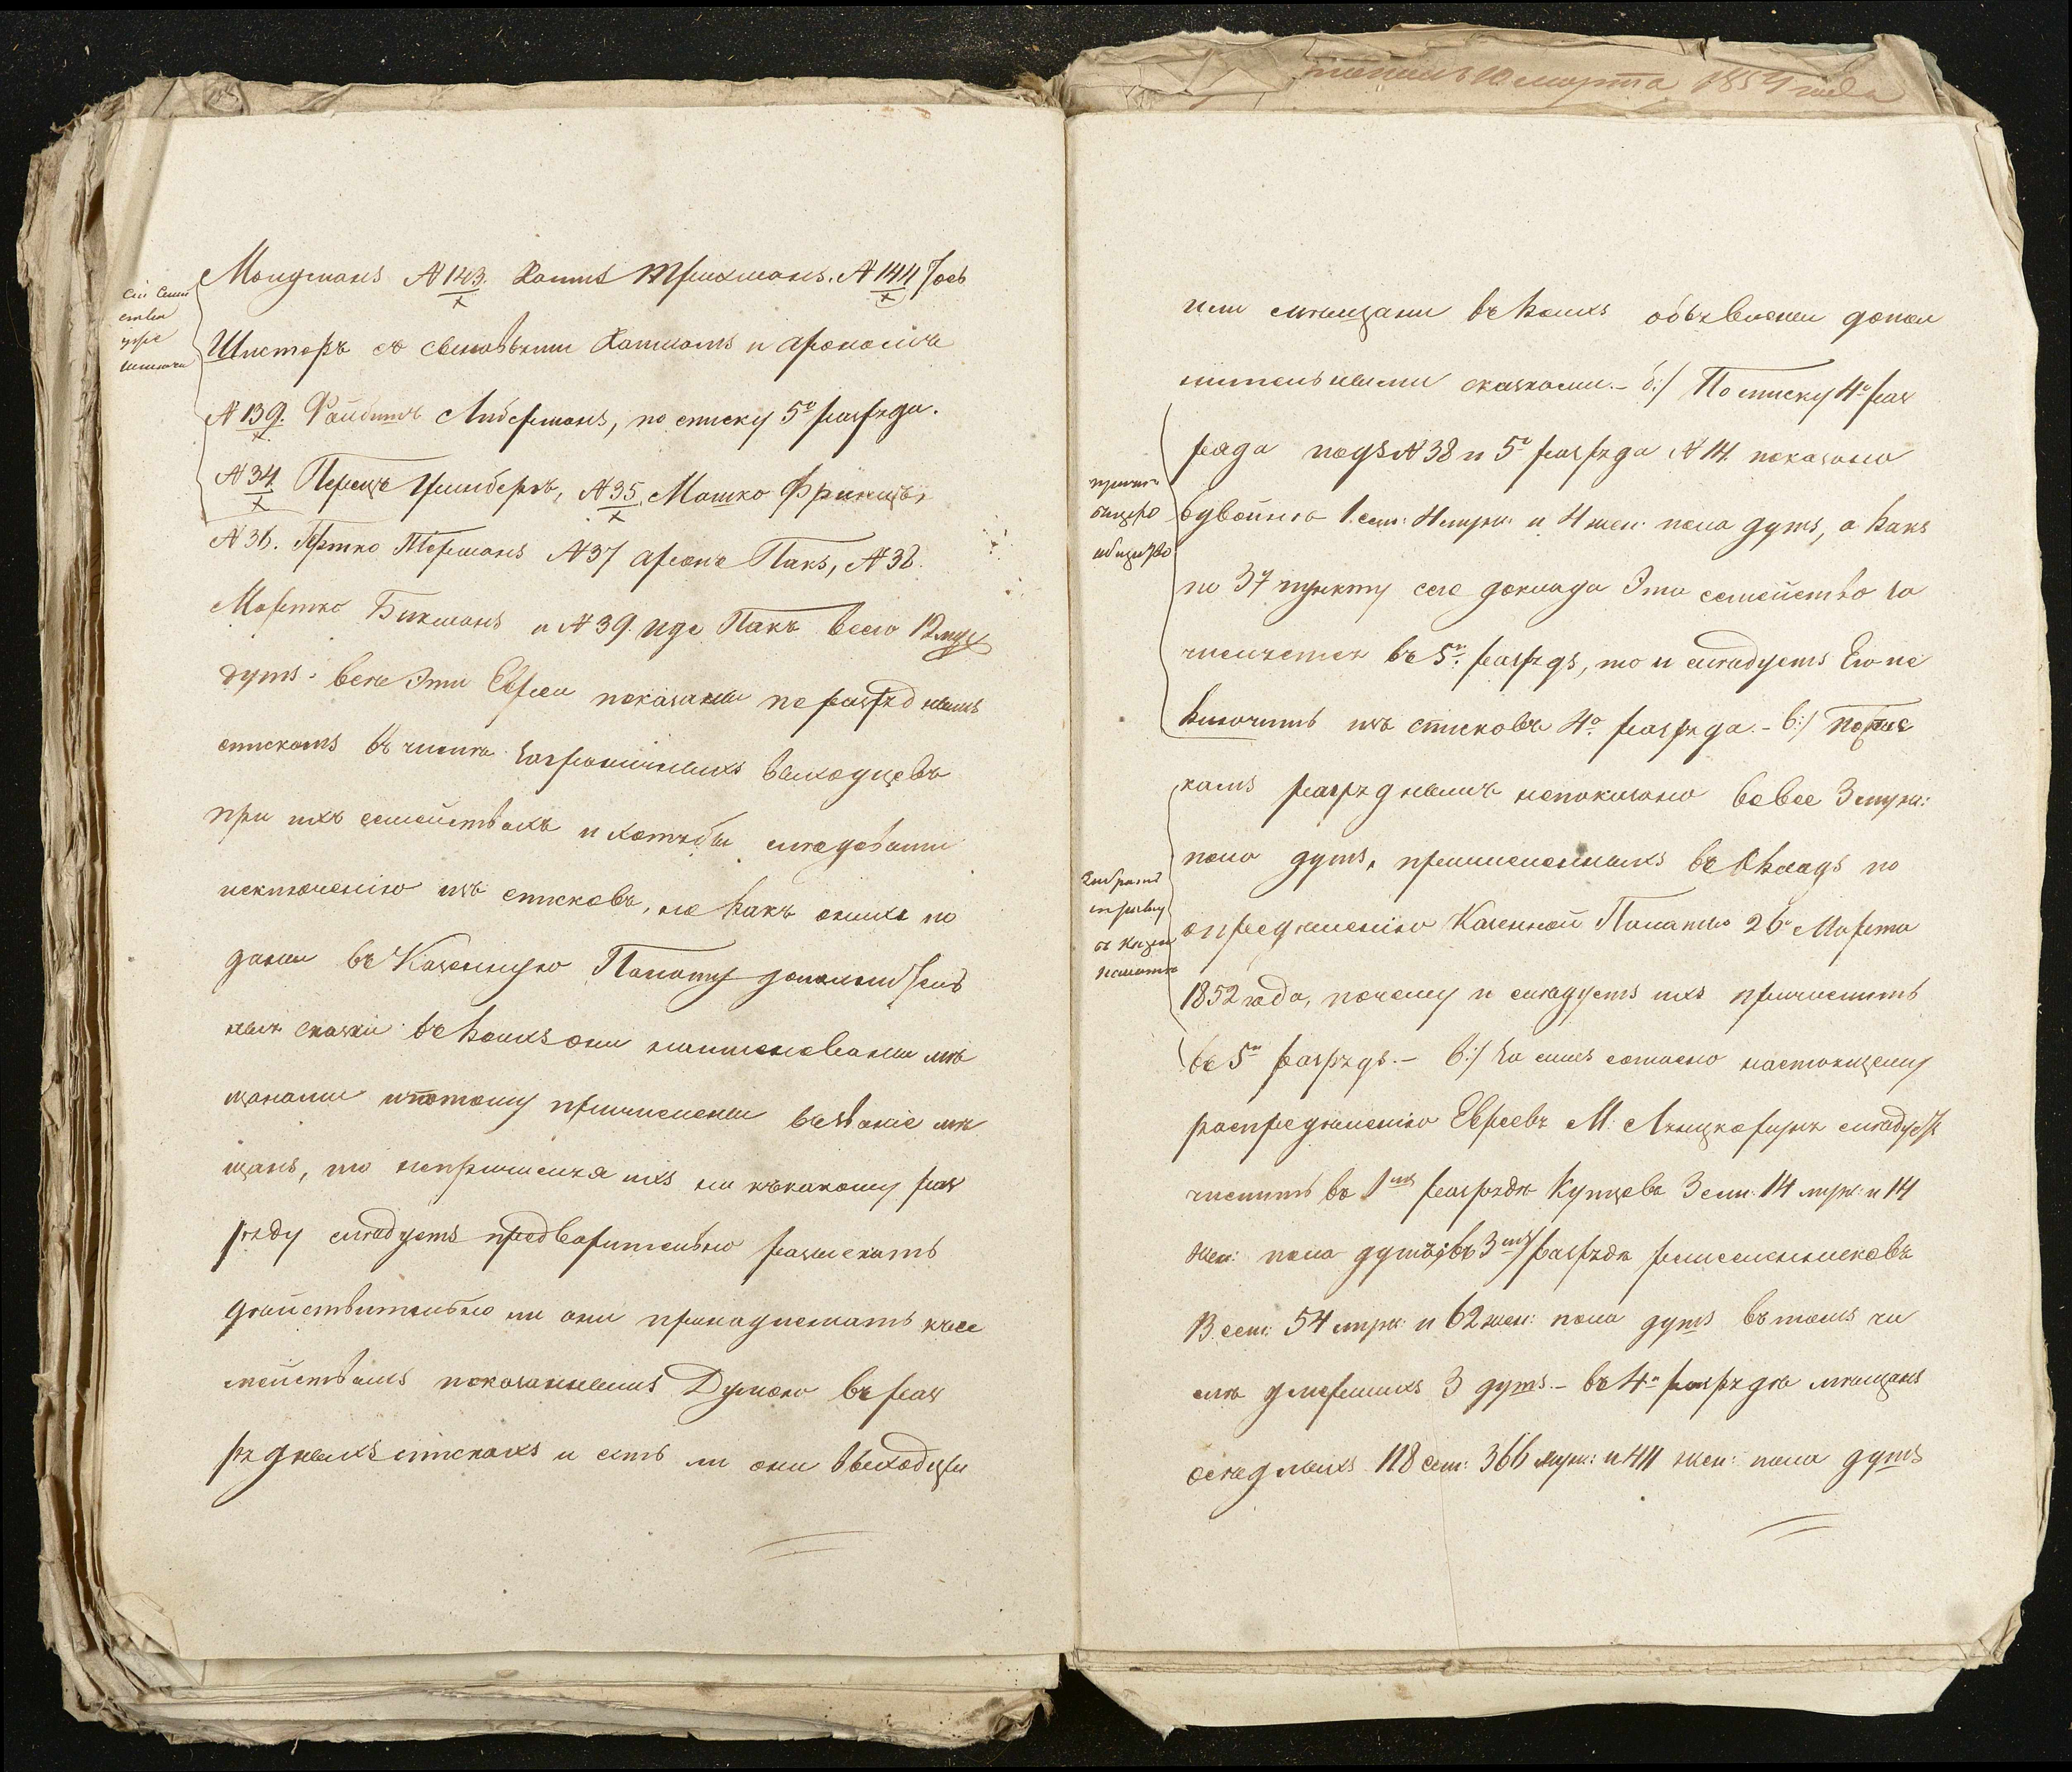 Сіи Семей
ства
исключены
Моидманъ № 143. Хаимъ Трихманъ. № 144 Іось
Шистеръ съ сыновьями Хаимомъ и Арономъ
№ 139. Файвишъ Либерманъ, по списку 5го разряда.
№ 34 Перецъ Цимберъ, № 35. Мошко Френцъ,
№ 36. Гершко Терманъ № 37 Аронъ Пакъ, № 38.
Мортко Бикманъ и № 39. Иде Пакъ всего 12 муж
душъ. всѣ Эти Евреи показаны по разряднымъ
спискамъ въ числѣ заграничныхъ выходцевъ
при ихъ семействахъ и хотябы слѣдовали
исключенію изъ списковъ, но какъ оныхъ по
даны въ Казенную Палату дополнитель
ныя сказки въ коихъ они наименованы мѣ
щанами и потому причислены въ званіе мѣ
щанъ, то непричисляя ихъ ни къ какому раз
ряду слѣдуетъ предварительно разыскать
дѣйствительно ли они принадлежатъ къ се
мействамъ показаннымъ Думою въ раз
рядныхъ спискахъ и есть ли они выходцы
марта 1854 года
или мѣщани въ коихъ объявлены допол
нительными сказками. - б:/ По списку 4го раз
ряда подъ № 38 и 5го разряда № 14 показано
вдвойнѣ 1. сем: 4 муж: и 4 жен: пола душъ, а какъ
по 37 пункту сего доклада Это семейство за
числяется въ 5м. разрядъ, то и слѣдуетъ Его ис
ключить изъ списковъ 4го разряда. - в:/ По спис
камъ разряднымъ непоказано вовсе 3 муж:
пола душъ, причисленныхъ въ Окладъ по
опредѣленію Казенной Палаты 26го Марта
1852 года, почему и слѣдуетъ ихъ причислить
въ 5й разрядъ. - в:/ За симъ согласно настоящему
распредѣленію Евреевъ М: слѣдуетъ
числить въ 1мъ разрядѣ Купцовъ 3 сем: 14 муж: и 14
жен: пола душъ; въ 3мъ разрядѣ ремесленниковъ
13. сем: 54 муж: и 62 жен: пола душъ въ томъ чи
слѣ умершихъ 3 душъ. - въ 4м разрядѣ мѣщанъ
осѣдлыхъ 118 сем: 366 муж: и 411 жен: пола душъ